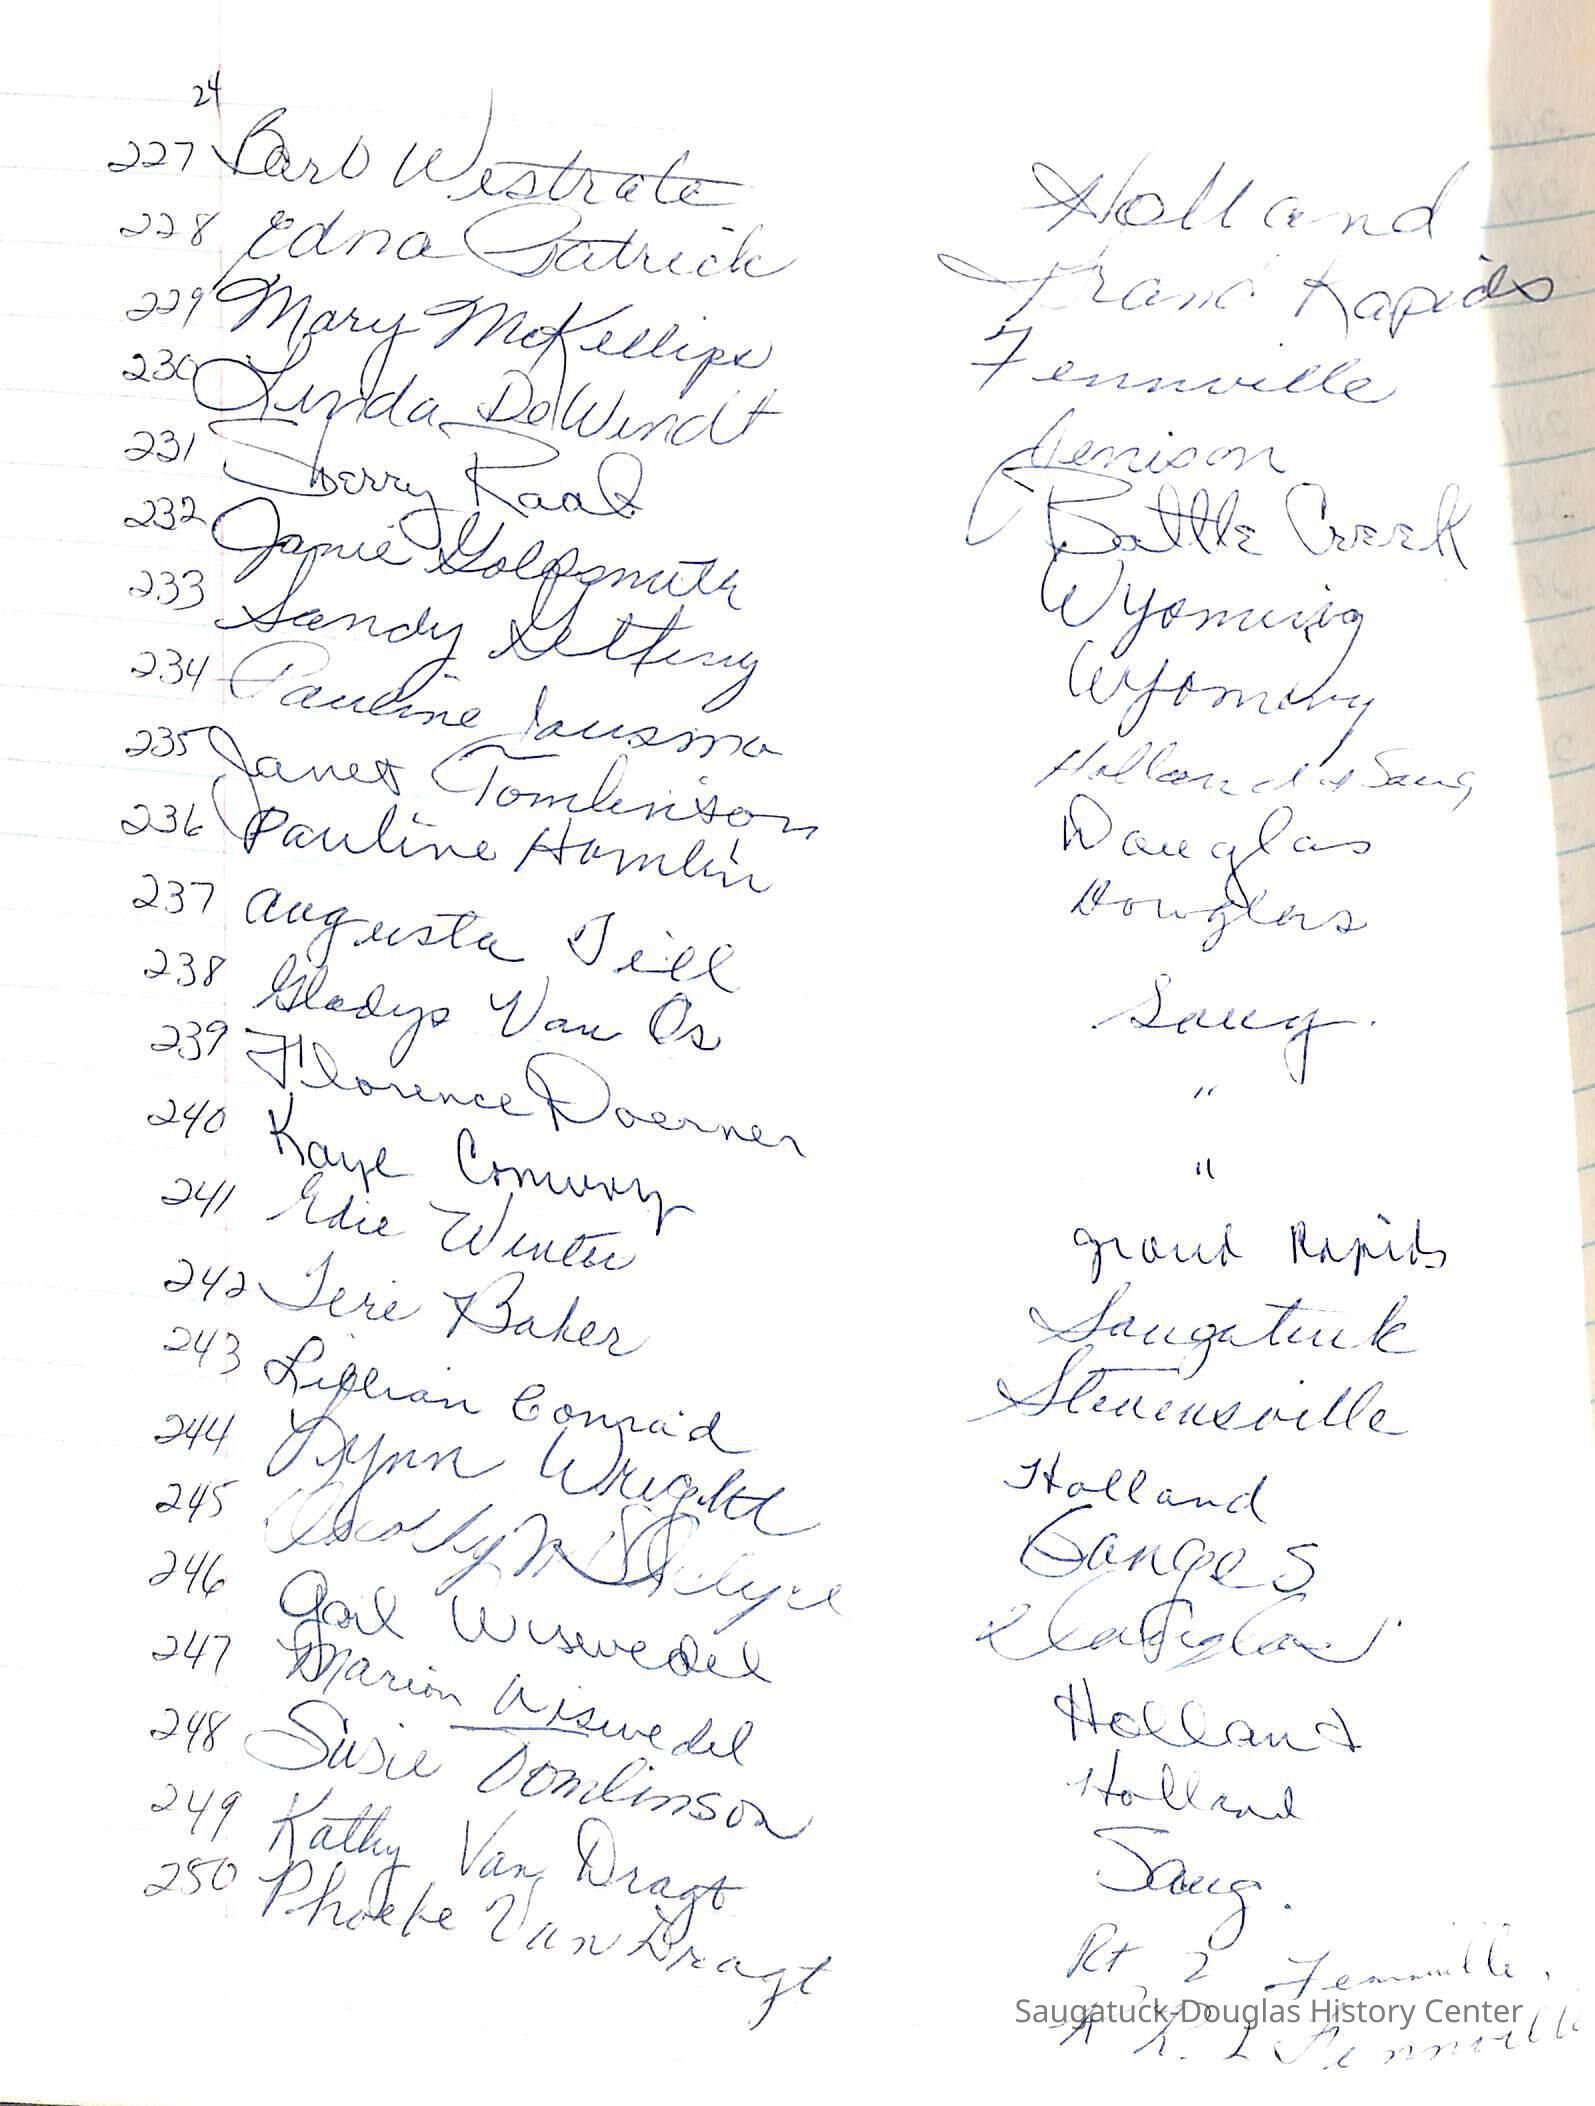 24
227 Barb Westrate Holland
228 Edna Patrick Grand Rapids
229 Mary McKellips Fennville
230 Linda DeWindt Jenison
231 Sherry Raab Battle Creek
232 Janie Goldsmith Wyoming
233 Sandy Wyoming
234 Pauline Jousma Holland & Saug
235 Janet Tomlinson Douglas
236 Pauline Hamlin Douglas
237 Augusta Till Saug.
238 Gladys Van Os "
239 Florence Doerner "
240 Kaye Conway Grand Rapids
241 Edie Winter Saugatuck
242 Teri Baker Stevensville
243 Lillian Conrad Holland
244 Lynn Wright Ganges
245 Douglas
246 Gail Wiswedel Holland
247 Marion Wiswedel Holland
248 Susie Tomlinson Saug.
249 Kathy Van Dragt Rt 2 Fennville.
250 Phoebe Van Dragt R. 2 Fennville
Saugatuck-Douglas History Center